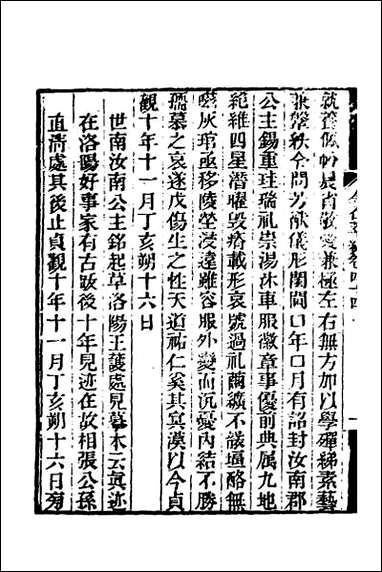 就養佩帨晨省敬愛兼極左右無方加以學殫綈素藝
兼鞶紩令問芳猷儀形閨閫口年口月有詔封汝南郡
公主錫重珪瑞禮崇湯沐車服徽章事優前典属九地
絕維四星潛曜毀瘠載形哀號過禮繭纊不襲鹽酪無
嗞灰琯亟移陵塋浸遠雖容服外變而沉憂内結不勝
孺慕之哀遂成傷生之性天道祐仁奚其冥漠以今貞
觀十年十一月丁亥朔十六日
世南汝南公主銘起草洛陽王護處見摹本云眞迹
在洛陽好事家有古跋後十年見迹在故相張公孫
直淸處其後止貞觀十年十一月丁亥朔十六日旁